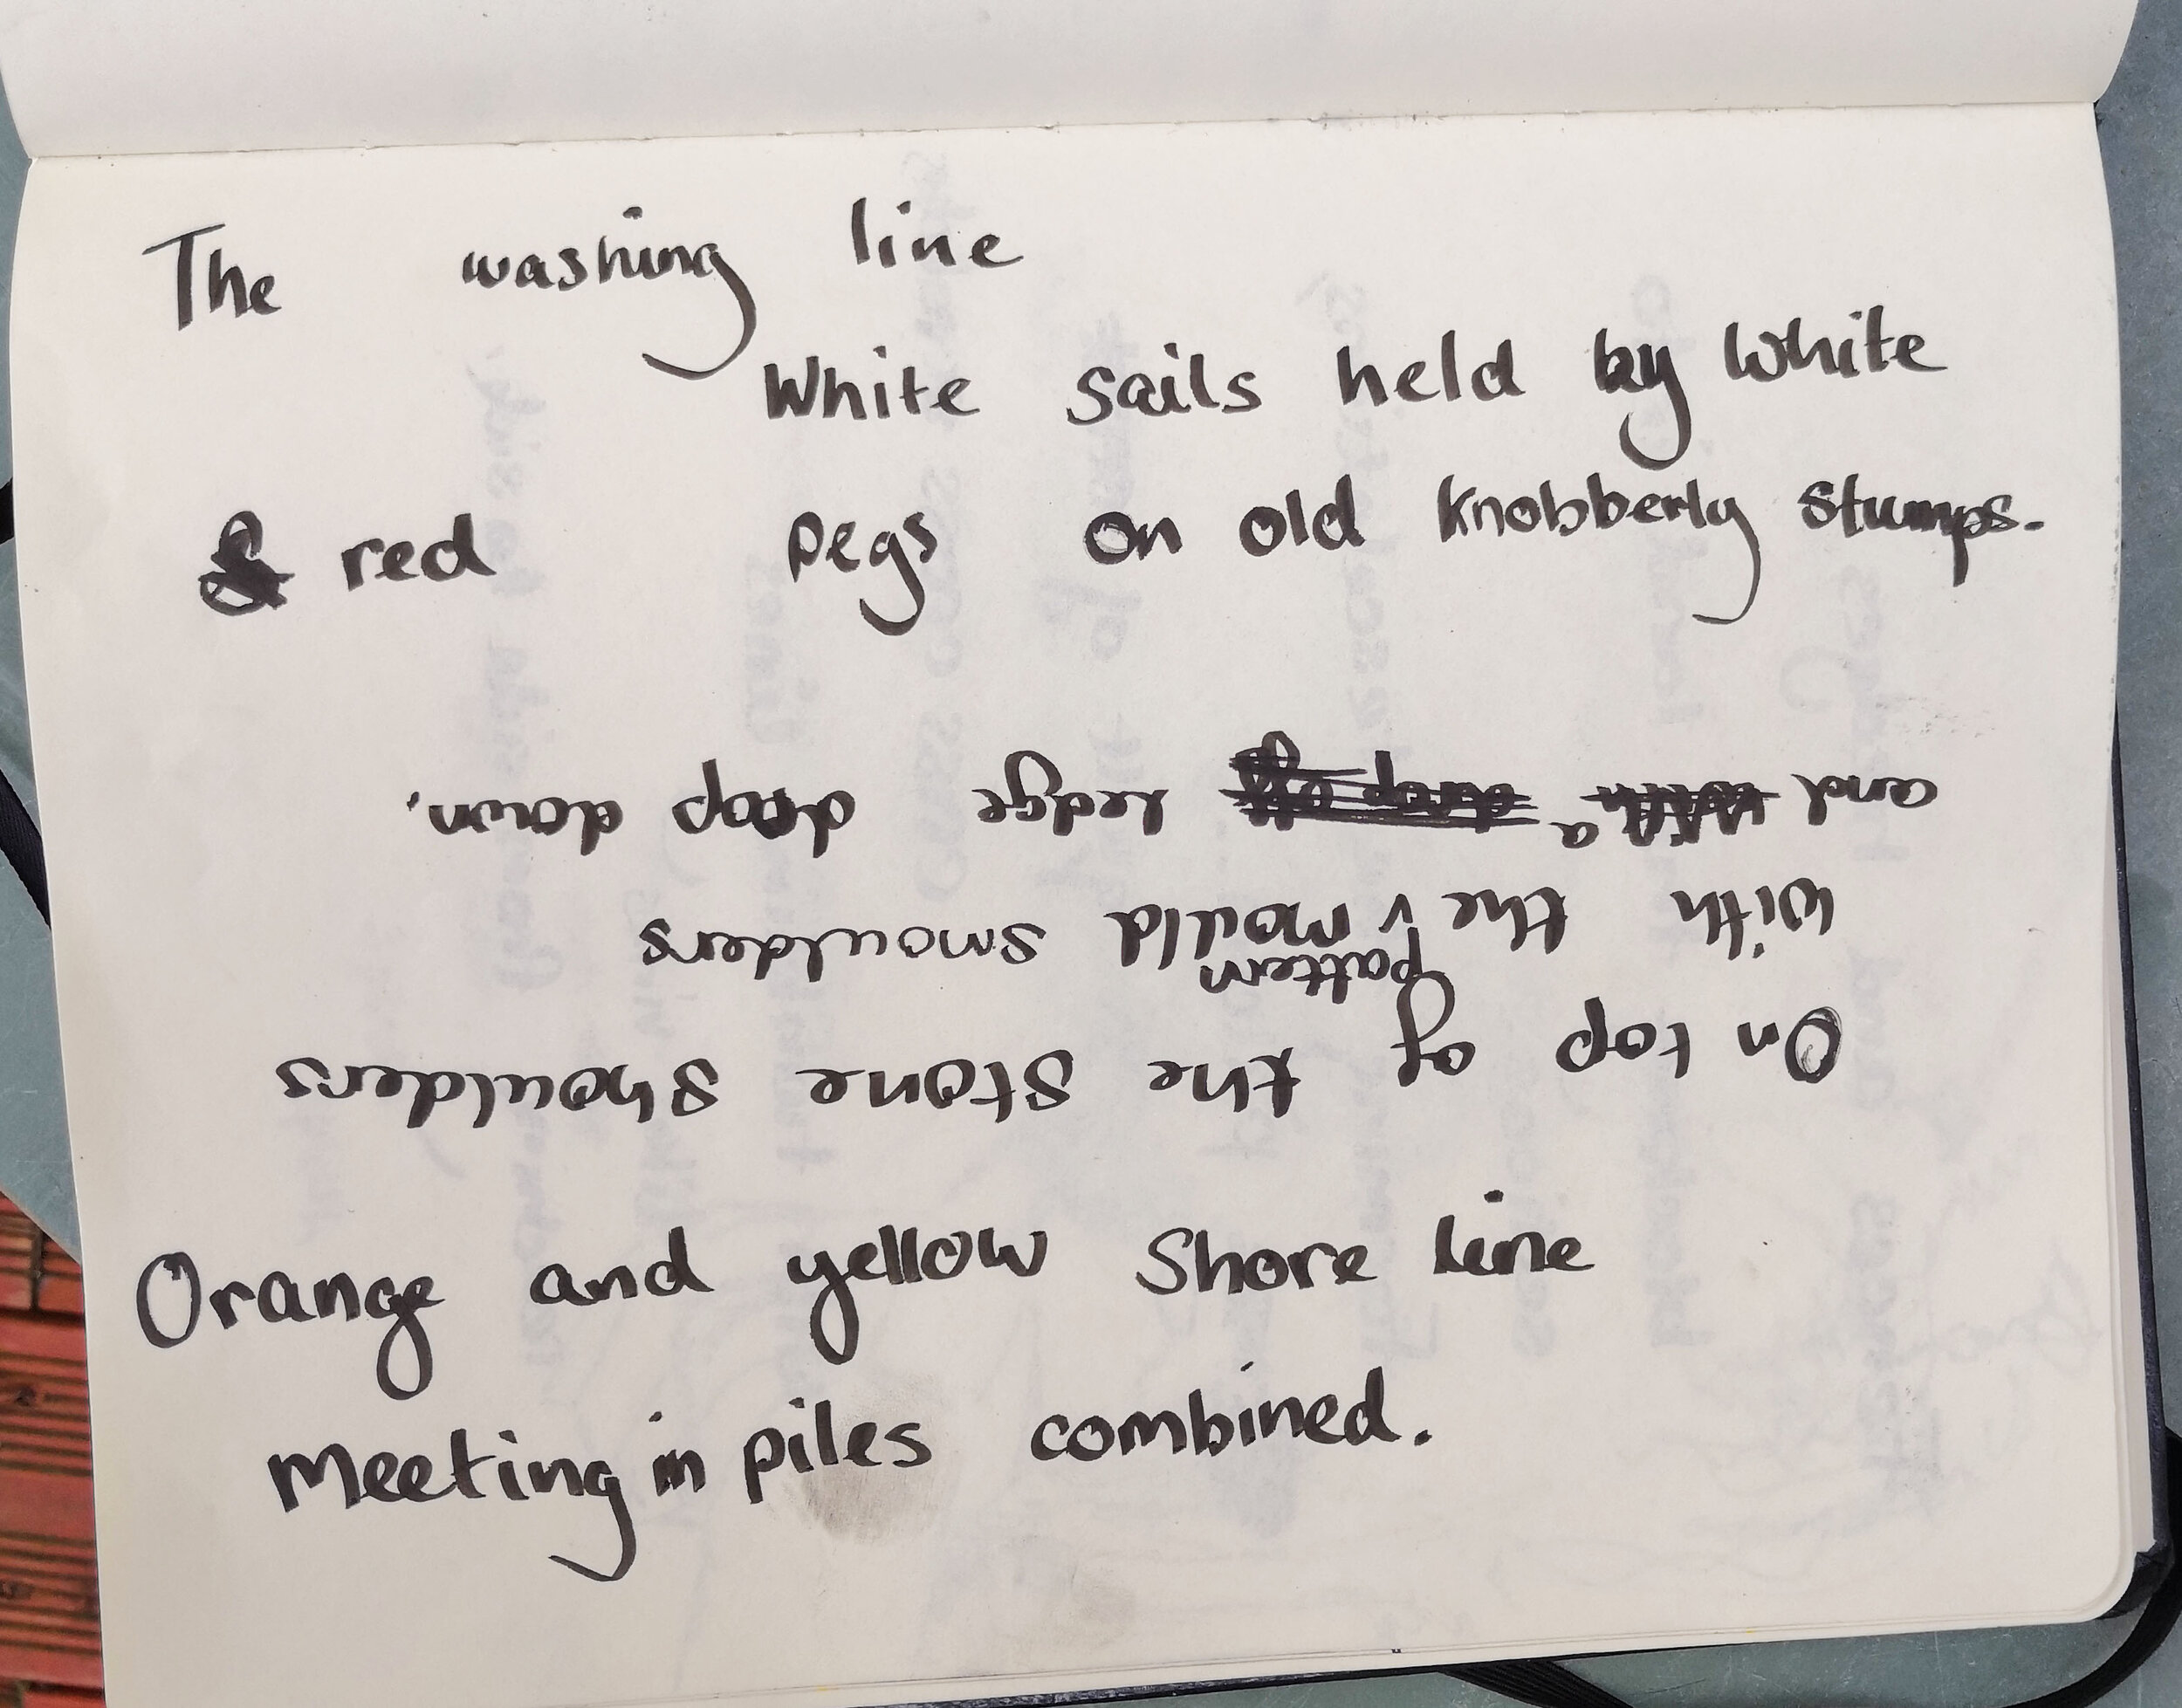 The washing line
White sails held by white
& red pegs on old knobberly stumps.
On top of the stone shoulders
with the pattern mould smoulders
and a ledge drop down.
Orange and yellow Shore line
meeting in piles combined.